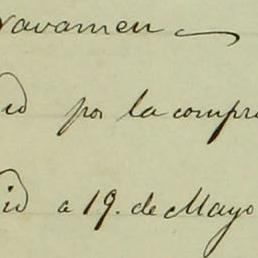 ravamen
id por la compra
id a 19. de Mayo